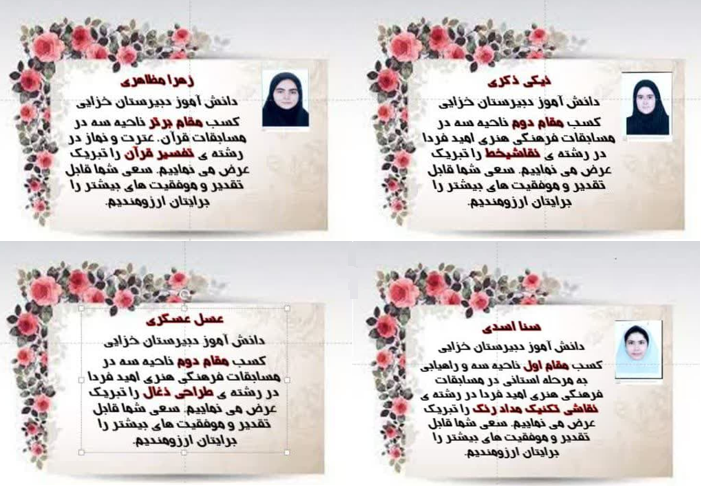 زهرا مظاهری
دانش آموز دبیرستان خزایی
کسب مقام برتر ناحیه سه در
مسابقات قرآن، عترت و نماز در
رشته ی تفسیر قرآن را تبریک
عرض می نماییم. سعی شما قابل
تقدیر و موفقیت های بیشتر را
برایتان آرزومندیم.
نیکی ذکری
دانش آموز دبیرستان خزایی
کسب مقام دوم ناحیه سه در
مسابقات فرهنگی هنری امید فردا
در رشته ی نقاشیخط را تبریک
عرض می نماییم. سعی شما قابل
تقدیر و موفقیت های بیشتر را
برایتان آرزومندیم.
عسل عسگری
دانش آموز دبیرستان خزایی
کسب مقام دوم ناحیه سه در
مسابقات فرهنگی هنری امید فردا
در رشته ی طراحی ذغال را تبریک
عرض می نماییم. سعی شما قابل
تقدیر و موفقیت های بیشتر را
برایتان آرزومندیم.
سنا اسدی
دانش آموز دبیرستان خزایی
کسب مقام اول ناحیه سه و راهیابی
به مرحله استانی در مسابقات
فرهنگی هنری امید فردا در رشته ی
نقاشی تکنیک مداد رنگ را تبریک
عرض می نماییم. سعی شما قابل
تقدیر و موفقیت های بیشتر را
برایتان آرزومندیم.